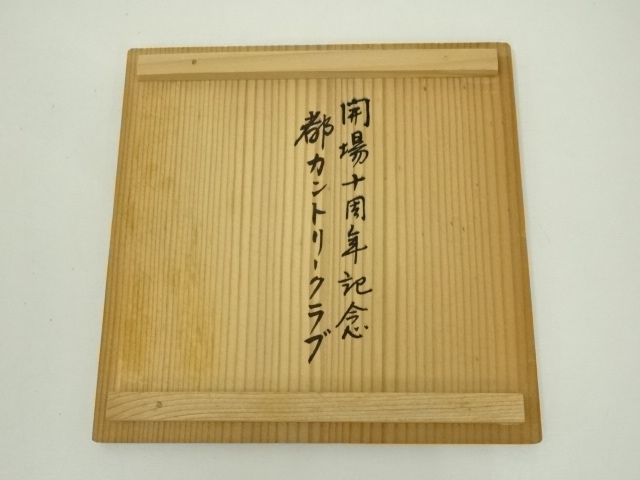 開場十周年記念
都カントリークラブ